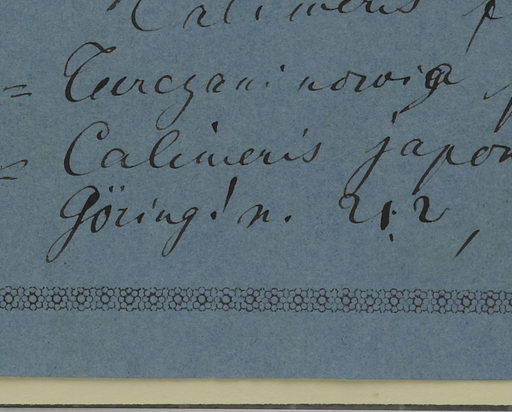 Calimeris
= Turczaninowia
= Calimeris japon
Göring! n. 212,